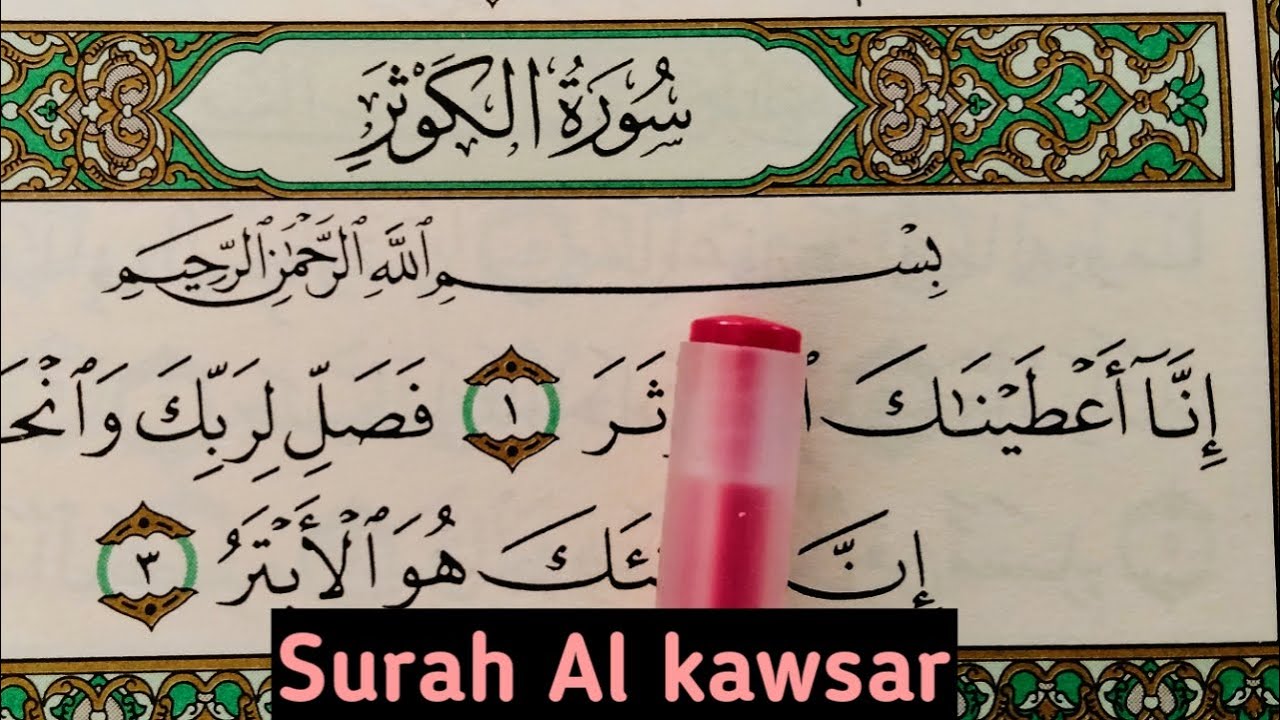 سُورَةُ الكَوْثَرِ
بِسْمِ ٱللَّهِ ٱلرَّحْمَٰنِ ٱلرَّحِيمِ
إِنَّآ أَعْطَيْنَٰكَ ١ فَصَلِّ لِرَبِّكَ
إِنَّ هُوَ ٱلْأَبْتَرُ ٣
Surah Al kawsar